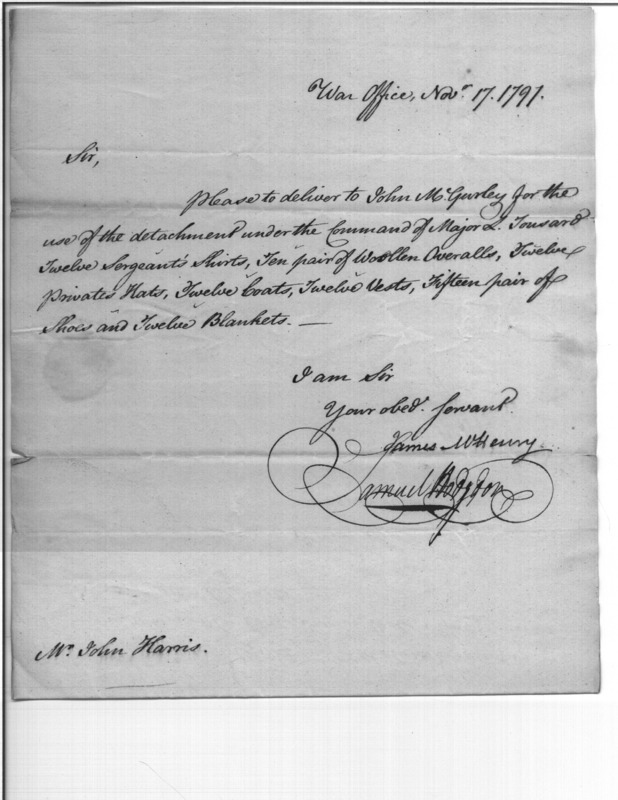 War Office, Novr. 17. 1797.
Sir,
Please to deliver to John McGurley for the
use of the detachment under the Command of Major L. Tousard
Twelve Sergeant's Shirts, Ten pair of Woollen Overalls, Twelve
privates Hats, Twelve Coats, Twelve Vests, Fifteen pair of
Shoes and Twelve Blankets. —
I am Sir
Your obed. Servant
James McHenry.
Samuel Hodgdon
Mr. John Harris.